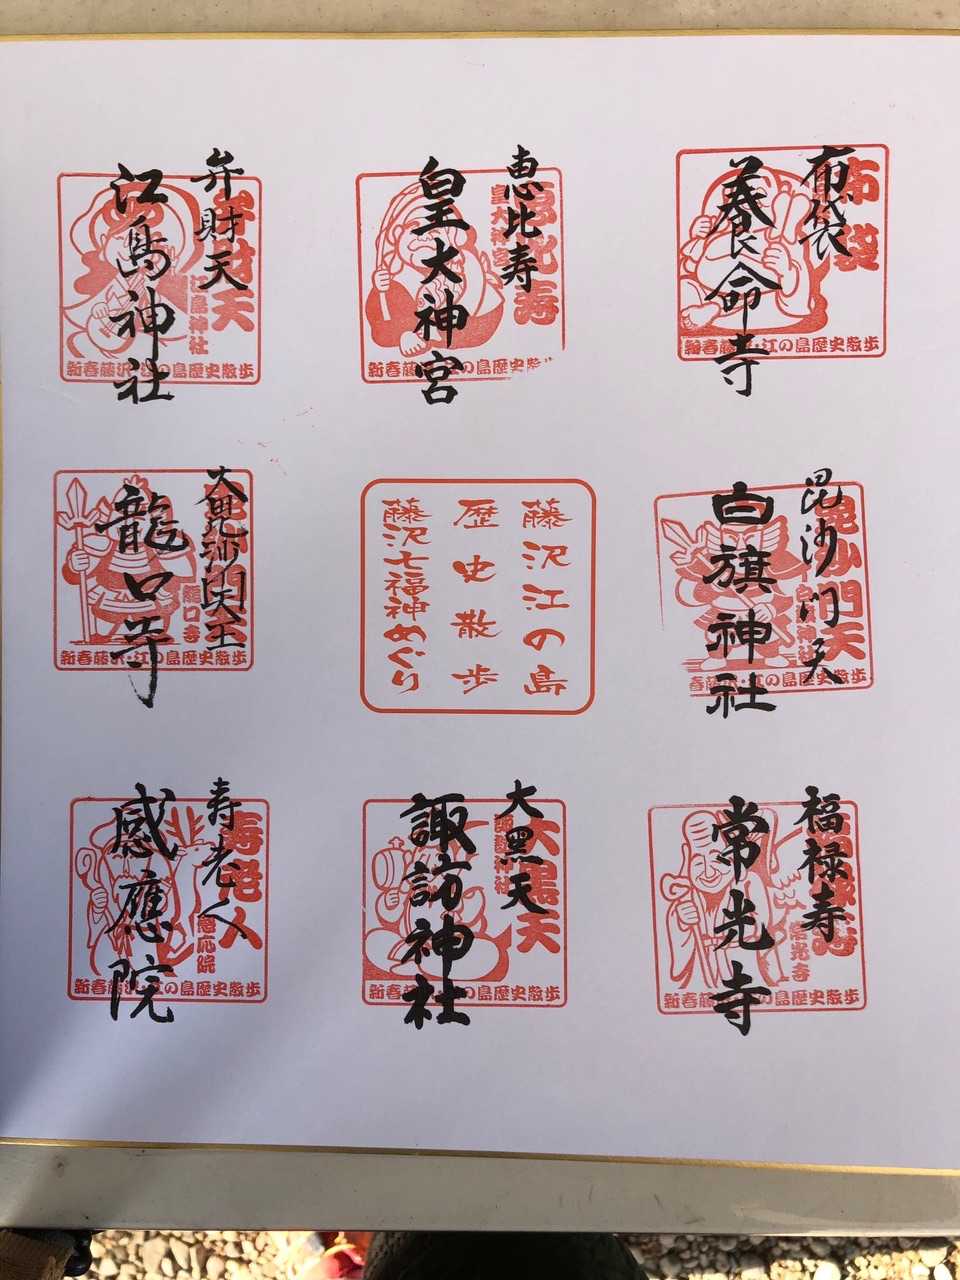 布袋
養命寺
布袋
新春藤沢・江の島歴史散歩
恵比寿
皇大神宮
恵比寿
皇大神宮
新春藤沢・江の島歴史散歩
弁財天
江島神社
弁財天
江島神社
新春藤沢・江の島歴史散歩
毘沙門天
白旗神社
毘沙門天
白旗神社
春藤沢・江の島歴史散歩
藤沢江の島
歴史散歩
藤沢七福神めぐり
大毘沙門天王
龍口寺
龍口寺
新春藤沢・江の島歴史散歩
福禄寿
常光寺
福禄寿
常光寺
新春藤沢・江の島歴史散歩
大黒天
諏訪神社
大黒天
諏訪神社
新春藤沢・江の島歴史散歩
寿老人
感應院
寿老人
感応院
新春藤沢・江の島歴史散歩